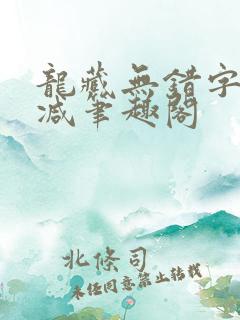 龍藏無錯字
減筆趣閣
北條司
未任同意禁止转载